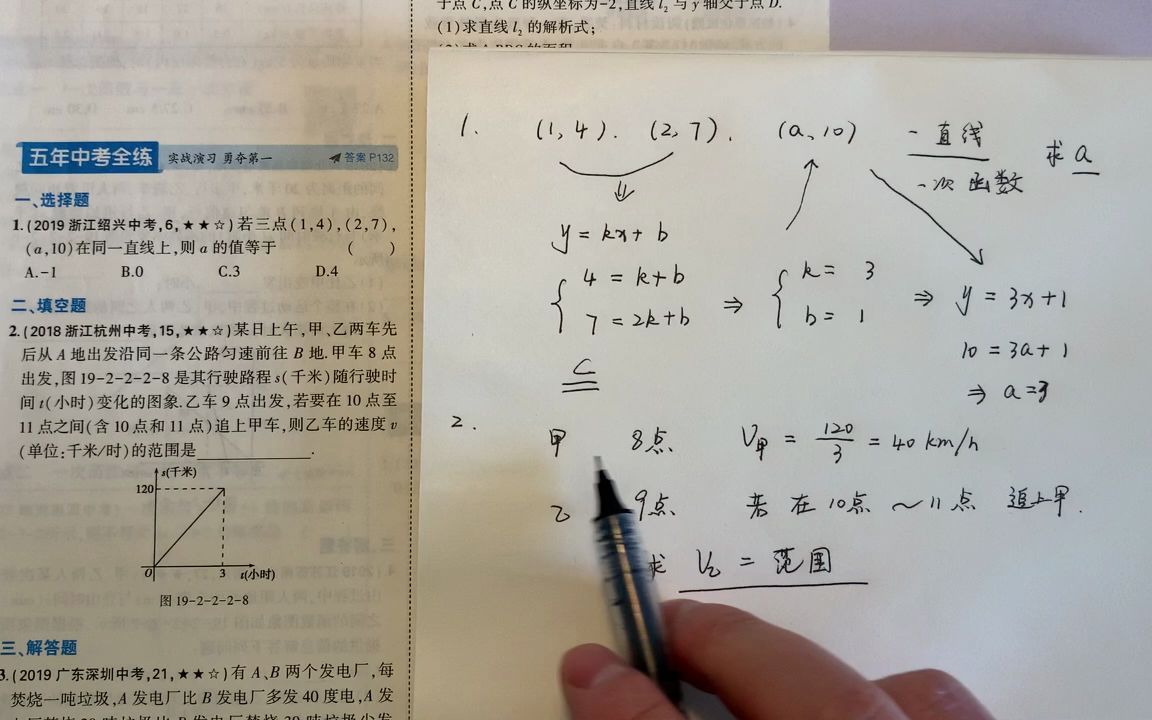 于点 C,点 C 的纵坐标为-2,直线 l₂ 与 y 轴交于点 D.
(1)求直线 l₂ 的解析式;
五年中考全练 实战演习 勇夺第一 答案 P132
一、选择题
1.(2019 浙江绍兴中考,6,★★☆)若三点(1,4),(2,7),
(a,10)在同一直线上,则 a 的值等于 ( )
A.-1 B.0 C.3 D.4
二、填空题
2.(2018 浙江杭州中考,15,★★☆)某日上午,甲、乙两车先
后从 A 地出发沿同一条公路匀速前往 B 地.甲车 8 点
出发,图 19-2-2-2-8 是其行驶路程 s(千米)随行驶时
间 t(小时)变化的图象.乙车 9 点出发,若要在 10 点至
11 点之间(含 10 点和 11 点)追上甲车,则乙车的速度 v
(单位:千米/时)的范围是 .
s(千米)
120
O 3 t(小时)
图 19-2-2-2-8
三、解答题
3.(2019 广东深圳中考,21,★★☆)有 A、B 两个发电厂,每
焚烧一吨垃圾,A 发电厂比 B 发电厂多发 40 度电,A 发
1. (1,4). (2,7). (a,10) 一直线 求 a
一次函数
y = kx + b
4 = k+b ⇒ k = 3 ⇒ y = 3x+1
7 = 2k+b b = 1
10 = 3a+1
C ⇒ a=3
2.
甲 8点 V甲 = 120/3 = 40 km/h
乙 9点 若在10点～11点 追上甲.
求 V乙 = 范围